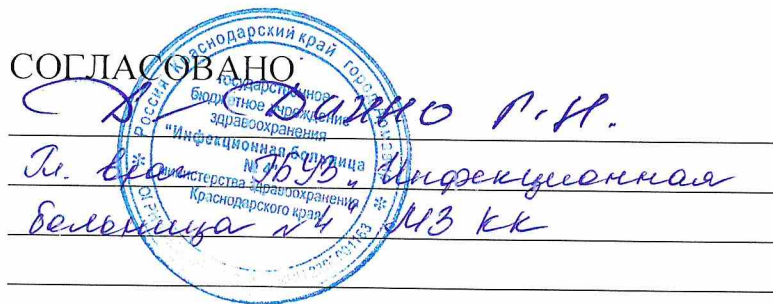 СОГЛАСОВАНО
Данно Г.Н.
Гл. врач ГБУЗ „Инфекционная
больница №4" МЗ КК
Россия Краснодарский край город
государственное
бюджетное учреждение
здравоохранения
"Инфекционная больница
№ 4"
министерства здравоохранения
Краснодарского края